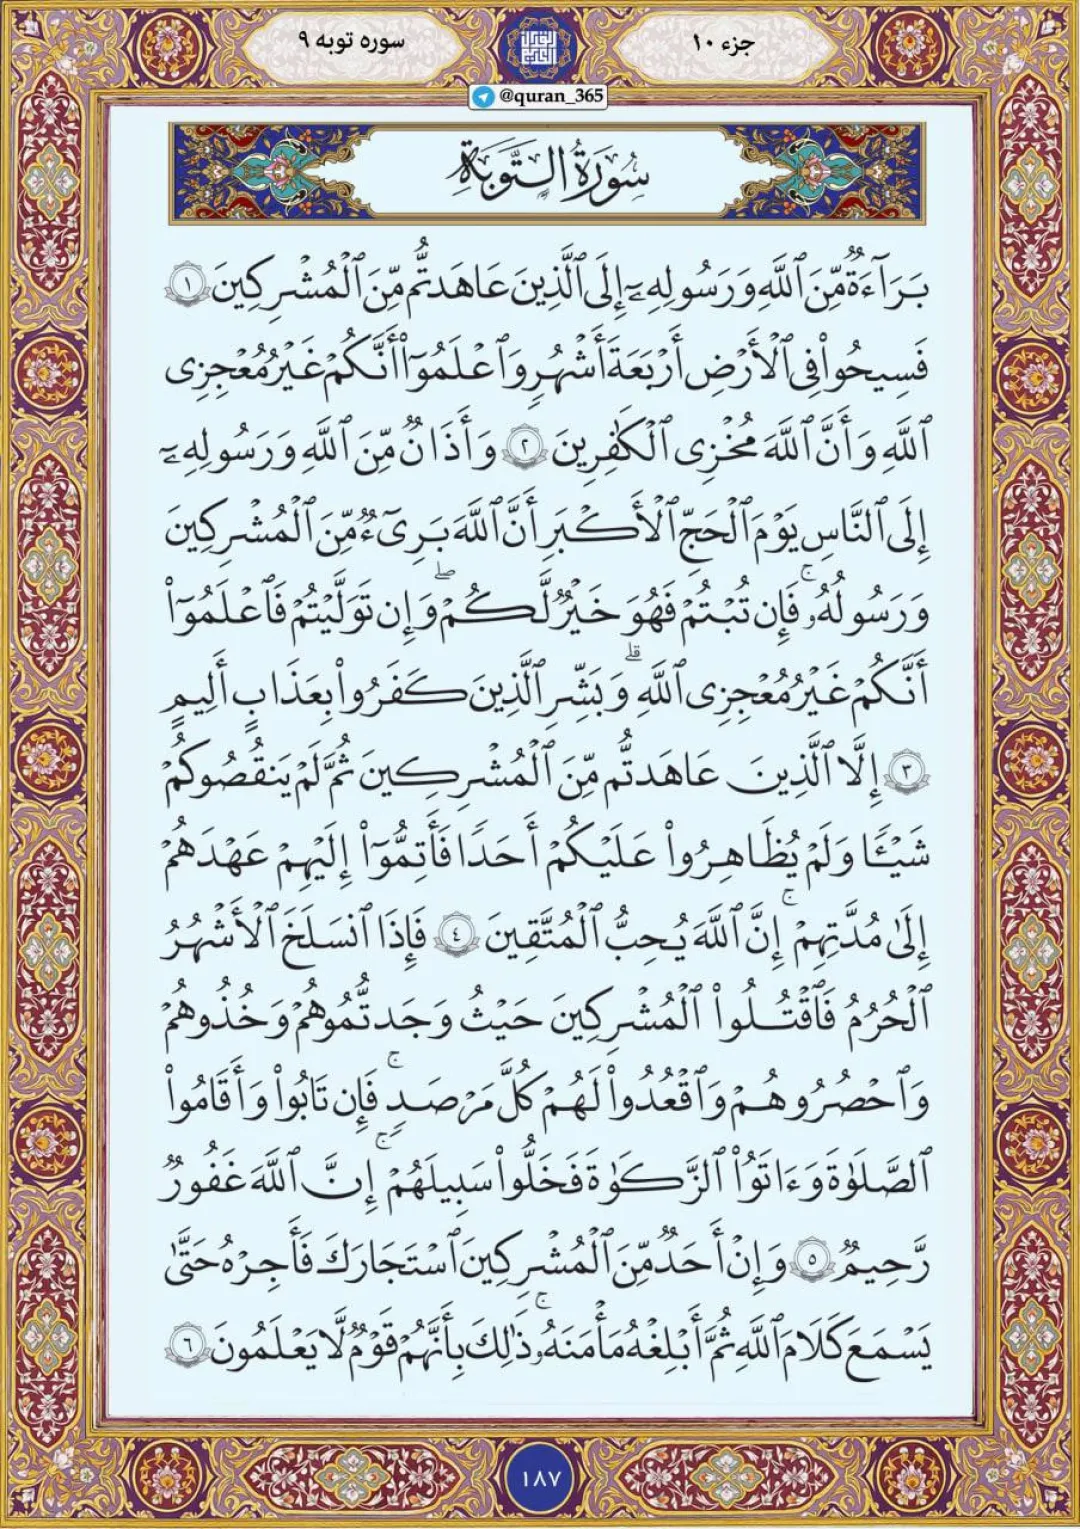 جزء ۱۰
سوره توبه ۹
@quran_365
سُورَةُ التَّوبَةِ
بَرَآءَةٌ مِّنَ ٱللَّهِ وَرَسُولِهِۦٓ إِلَى ٱلَّذِينَ عَٰهَدتُّم مِّنَ ٱلْمُشْرِكِينَ ۝١
فَسِيحُوا۟ فِى ٱلْأَرْضِ أَرْبَعَةَ أَشْهُرٍ وَٱعْلَمُوٓا۟ أَنَّكُمْ غَيْرُ مُعْجِزِى
ٱللَّهِ وَأَنَّ ٱللَّهَ مُخْزِى ٱلْكَٰفِرِينَ ۝٢ وَأَذَٰنٌ مِّنَ ٱللَّهِ وَرَسُولِهِۦٓ
إِلَى ٱلنَّاسِ يَوْمَ ٱلْحَجِّ ٱلْأَكْبَرِ أَنَّ ٱللَّهَ بَرِىٓءٌ مِّنَ ٱلْمُشْرِكِينَ
وَرَسُولُهُۥ ۚ فَإِن تُبْتُمْ فَهُوَ خَيْرٌ لَّكُمْ ۖ وَإِن تَوَلَّيْتُمْ فَٱعْلَمُوٓا۟
أَنَّكُمْ غَيْرُ مُعْجِزِى ٱللَّهِ ۗ وَبَشِّرِ ٱلَّذِينَ كَفَرُوا۟ بِعَذَابٍ أَلِيمٍ
۝٣ إِلَّا ٱلَّذِينَ عَٰهَدتُّم مِّنَ ٱلْمُشْرِكِينَ ثُمَّ لَمْ يَنقُصُوكُمْ
شَيْـًٔا وَلَمْ يُظَٰهِرُوا۟ عَلَيْكُمْ أَحَدًا فَأَتِمُّوٓا۟ إِلَيْهِمْ عَهْدَهُمْ
إِلَىٰ مُدَّتِهِمْ ۚ إِنَّ ٱللَّهَ يُحِبُّ ٱلْمُتَّقِينَ ۝٤ فَإِذَا ٱنسَلَخَ ٱلْأَشْهُرُ
ٱلْحُرُمُ فَٱقْتُلُوا۟ ٱلْمُشْرِكِينَ حَيْثُ وَجَدتُّمُوهُمْ وَخُذُوهُمْ
وَٱحْصُرُوهُمْ وَٱقْعُدُوا۟ لَهُمْ كُلَّ مَرْصَدٍ ۚ فَإِن تَابُوا۟ وَأَقَامُوا۟
ٱلصَّلَوٰةَ وَءَاتَوُا۟ ٱلزَّكَوٰةَ فَخَلُّوا۟ سَبِيلَهُمْ ۚ إِنَّ ٱللَّهَ غَفُورٌ
رَّحِيمٌ ۝٥ وَإِنْ أَحَدٌ مِّنَ ٱلْمُشْرِكِينَ ٱسْتَجَارَكَ فَأَجِرْهُ حَتَّىٰ
يَسْمَعَ كَلَٰمَ ٱللَّهِ ثُمَّ أَبْلِغْهُ مَأْمَنَهُۥ ۚ ذَٰلِكَ بِأَنَّهُمْ قَوْمٌ لَّا يَعْلَمُونَ ۝٦
۱۸۷